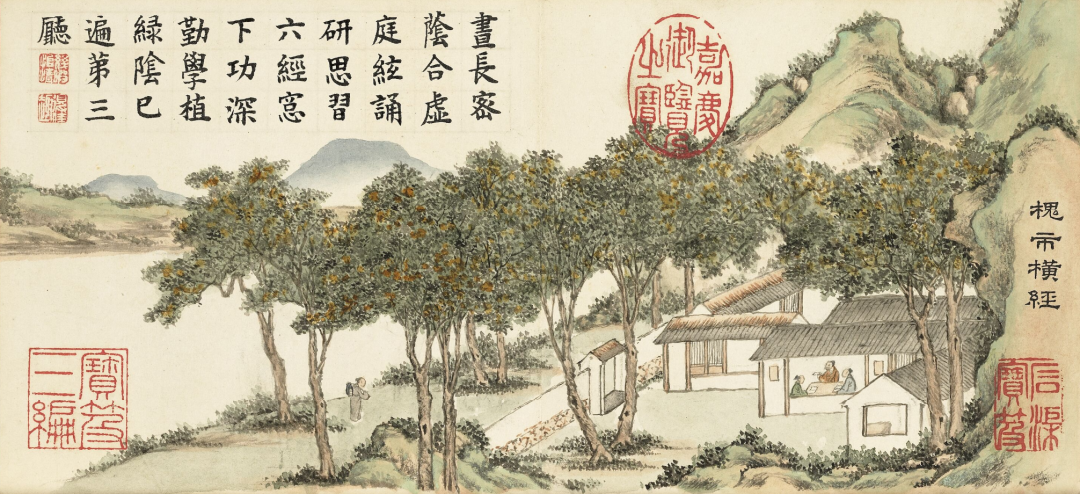 槐市橫經
石渠寶笈
嘉慶御覽之寶
晝長密
蔭合虛
庭絃誦
研思習
六經窓
下功深
勤學植
綠陰已
遍第三
廳
寶笈三編